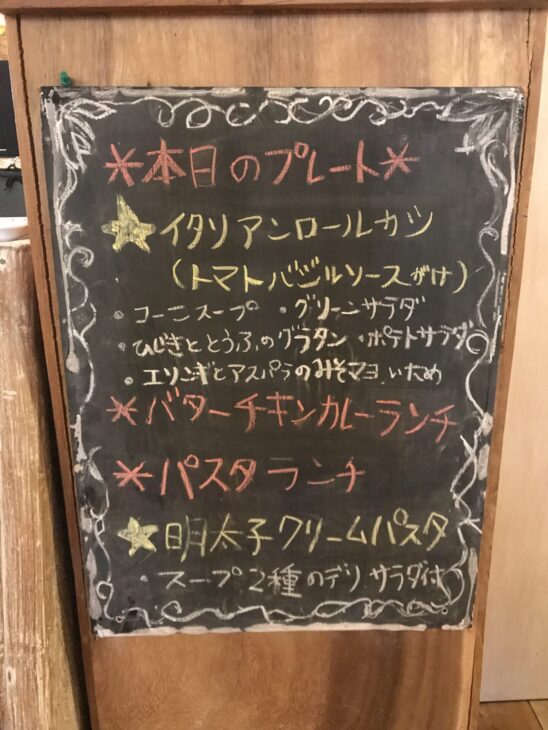 *本日のプレート*
★イタリアンロールカツ
(トマトバジルソースがけ)
・コーンスープ ・グリーンサラダ
・ひじきととうふのグラタン ・ポテトサラダ
・エリンギとアスパラのみそマヨいため
*バターチキンカレーランチ
*パスタランチ
★明太子クリームパスタ
・スープ2種のデリサラダ付